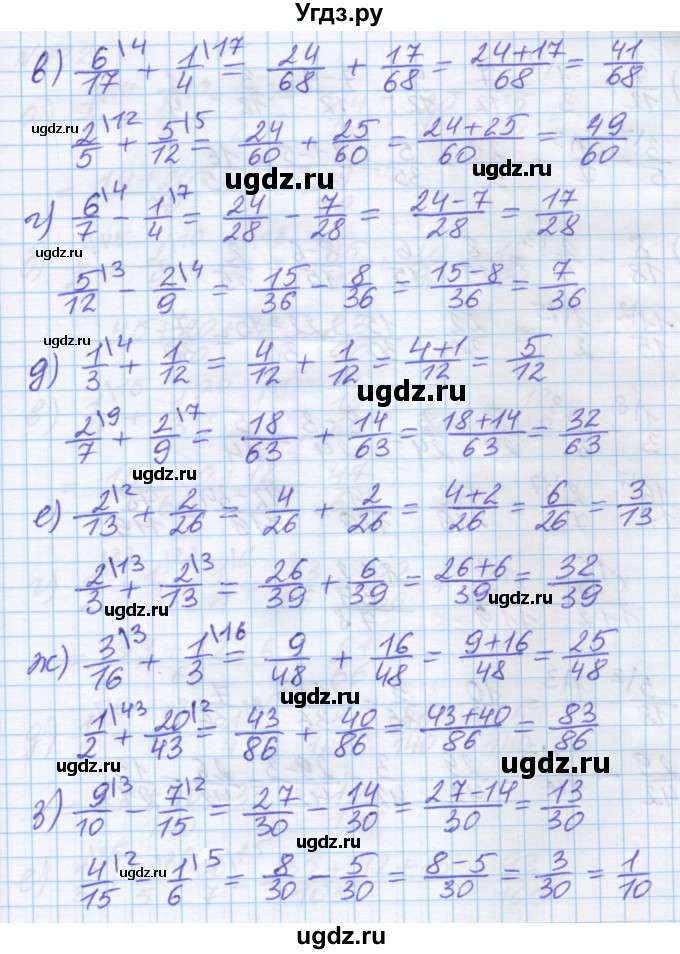 Угдз.ру
в) 6/17 \4 + 1/4 \17 = 24/68 + 17/68 = 24+17/68 = 41/68
ugdz.ru
2/5 \12 + 5/12 \5 = 24/60 + 25/60 = 24+25/60 = 49/60
ugdz.ru
ugdz.ru
г) 6/7 \4 - 1/4 \7 = 24/28 - 7/28 = 24-7/28 = 17/28
ugdz.ru
ugdz.ru
5/12 \3 - 2/9 \4 = 15/36 - 8/36 = 15-8/36 = 7/36
ugdz.ru
д) 1/3 \4 + 1/12 = 4/12 + 1/12 = 4+1/12 = 5/12
ugdz.ru
2/7 \9 + 2/9 \7 = 18/63 + 14/63 = 18+14/63 = 32/63
ugdz.ru
е) 2/13 \2 + 2/26 = 4/26 + 2/26 = 4+2/26 = 6/26 = 3/13
ugdz.ru
2/3 \13 + 2/13 \3 = 26/39 + 6/39 = 26+6/39 = 32/39
ugdz.ru
ugdz.ru
ж) 3/16 \3 + 1/3 \16 = 9/48 + 16/48 = 9+16/48 = 25/48
ugdz.ru
1/2 \43 + 20/43 \2 = 43/86 + 40/86 = 43+40/86 = 83/86
ugdz.ru
ugdz.ru
з) 9/10 \3 - 7/15 \2 = 27/30 - 14/30 = 27-14/30 = 13/30
ugdz.ru
4/15 \2 - 1/6 \5 = 8/30 - 5/30 = 8-5/30 = 3/30 = 1/10
ugdz.ru
ugdz.ru
ugdz.ru